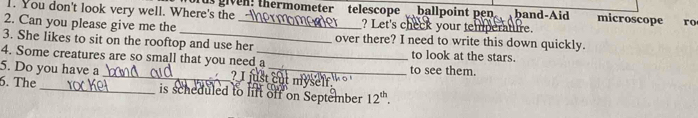 given: thermometer telescope ballpoint pen band-Aid microscope
1. You don't look very well. Where's the thermometer? Let's check your temperature.
2. Can you please give me the ____ over there? I need to write this down quickly.
3. She likes to sit on the rooftop and use her ____ to look at the stars.
4. Some creatures are so small that you need a ____ to see them.
5. Do you have a band aid? I just cut myself.
6. The rocket is scheduled to lift off on September 12th.